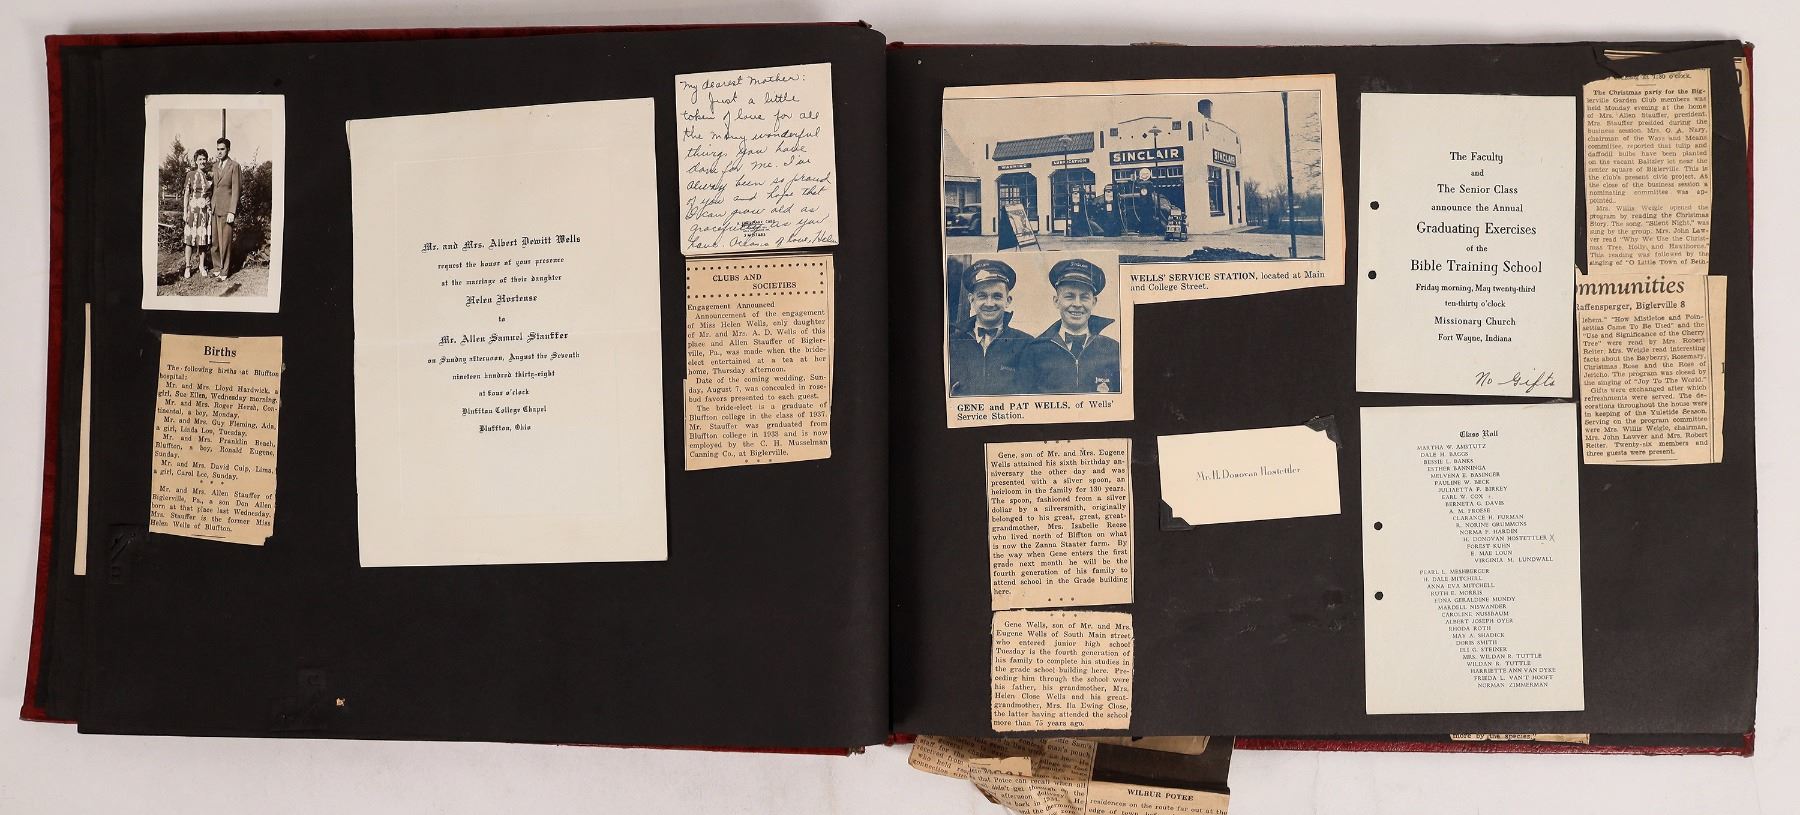 Births
The following births at Bluffton
hospital:
Mr. and Mrs. Lloyd Hardwick, a
girl, Sue Ellen, Wednesday morning.
Mr. and Mrs. Roger Hersh, Con-
tinental, a boy, Monday.
Mr. and Mrs. Guy Fleming, Ada,
a girl, Linda Lou, Tuesday.
Mr. and Mrs. Franklin Beach,
Bluffton, a boy, Ronald Eugene,
Sunday.
Mr. and Mrs. David Culp, Lima,
a girl, Carol Lee, Sunday.
Mr. and Mrs. Allen Stauffer of
Biglerville, Pa., a son Don Allen
born at that place last Wednesday.
Mrs. Stauffer is the former Miss
Helen Wells of Bluffton.
Mr. and Mrs. Albert Dewitt Wells
request the honor of your presence
at the marriage of their daughter
Helen Hortense
to
Mr. Allen Samuel Stauffer
on Sunday afternoon, August the Seventh
nineteen hundred thirty-eight
at four o'clock
Bluffton College Chapel
Bluffton, Ohio
My dearest Mother:
Just a little
token of love for all
the many wonderful
things you have
done for me. I've
always been so proud
of you and hope that
I can grow old as
gracefully as you
have. Oceans of love, Helen
CLUBS AND
SOCIETIES
Engagement Announced
Announcement of the engagement
of Miss Helen Wells, only daughter
of Mr. and Mrs. A. D. Wells of this
place and Allen Stauffer of Bigler-
ville, Pa., was made when the bride-
elect entertained at a tea at her
home, Thursday afternoon.
Date of the coming wedding, Sun-
day, August 7, was concealed in rose-
bud favors presented to each guest.
The bride-elect is a graduate of
Bluffton college in the class of 1937.
Mr. Stauffer was graduated from
Bluffton college in 1938 and is now
employed by the C. H. Musselman
Canning Co., at Biglerville.
WASHING
LUBRICATION
SINCLAIR
SINCLAIR
WELLS' SERVICE STATION, located at Main
and College Street.
GENE and PAT WELLS, of Wells'
Service Station.
Gene, son of Mr. and Mrs. Eugene
Wells attained his sixth birthday an-
niversary the other day and was
presented with a silver spoon, an
heirloom in the family for 130 years.
The spoon, fashioned from a silver
dollar by a silversmith, originally
belonged to his great, great, great-
grandmother, Mrs. Isabelle Reese
who lived north of Bluffton on what
is now the Zanna Staater farm. By
the way when Gene enters the first
grade next month he will be the
fourth generation of his family to
attend school in the Grade building
here.
Gene Wells, son of Mr. and Mrs.
Eugene Wells of South Main street
who entered junior high school
Tuesday is the fourth generation of
his family to complete his studies in
the grade school building here. Pre-
ceding him through the school were
his father, his grandmother, Mrs.
Helen Close Wells and his great-
grandmother, Mrs. Ila Ewing Close,
the latter having attended the school
more than 75 years ago.
Mr. H. Donovan Hostettler
The Faculty
and
The Senior Class
announce the Annual
Graduating Exercises
of the
Bible Training School
Friday morning, May twenty-third
ten-thirty o'clock
Missionary Church
Fort Wayne, Indiana
No Gifts
Class Roll
MARTHA W. AMSTUTZ
DALE H. BAGGS
BESSIE L. BANKS
ESTHER BANNINGA
MELVENA E. BASINGER
PAULINE W. BECK
JULIAETTA F. BIRKEY
EARL W. COX
BERNETA G. DAVIS
A. M. FROESE
CLARANCE H. FURMAN
R. NORINE GRUMMONS
NORMA P. HARDIN
H. DONOVAN HOSTETTLER X
FOREST KUHN
E. MAE LOUN
VIRGINIA M. LUNDWALL
PEARL L. MESHBERGER
H. DALE MITCHELL
ANNA EVA MITCHELL
RUTH E. MORRIS
EDNA GERALDINE MUNDY
MARDELL NISWANDER
CAROLINE NUSSBAUM
ALBERT JOSEPH OYER
RHODA ROTH
MAY A. SHADICK
DORIS SMITH
ELI G. STEINER
MRS. WILDAN R. TUTTLE
WILDAN R. TUTTLE
HARRIETTE ANN VAN DYKE
FRIEDA L. VAN'T HOOFT
NORMAN ZIMMERMAN
at 7:30 o'clock.
The Christmas party for the Big-
lerville Garden Club members was
held Monday evening at the home
of Mrs. Allen Stauffer, president.
Mrs. Stauffer presided during the
business session. Mrs. O. A. Nary,
chairman of the Ways and Means
committee, reported that tulip and
daffodil bulbs have been planted
on the vacant Baltzley lot near the
center square of Biglerville. This is
the club's present civic project. At
the close of the business session a
nominating committee was ap-
pointed.
Mrs. Willis Weigle opened the
program by reading the Christmas
Story. The song, "Silent Night," was
sung by the group. Mrs. John Law-
ver read "Why We Use the Christ-
mas Tree, Holly, and Hawthorne."
This reading was followed by the
singing of "O Little Town of Beth-
mmunities
Raffensperger, Biglerville 8
lehem." "How Mistletoe and Poin-
settias Came To Be Used" and the
"Use and Significance of the Cherry
Tree" were read by Mrs. Robert
Reiter. Mrs. Weigle read interesting
facts about the Bayberry, Rosemary,
Christmas Rose and the Rose of
Jericho. The program was closed by
the singing of "Joy To The World."
Gifts were exchanged after which
refreshments were served. The de-
corations throughout the house were
in keeping of the Yuletide Season.
Serving on the program committee
were Mrs. Willis Weigle, chairman,
Mrs. John Lawver and Mrs. Robert
Reiter. Twenty-six members and
three guests were present.
more by the species.
WILBUR POTEE
residences on the route far out at the